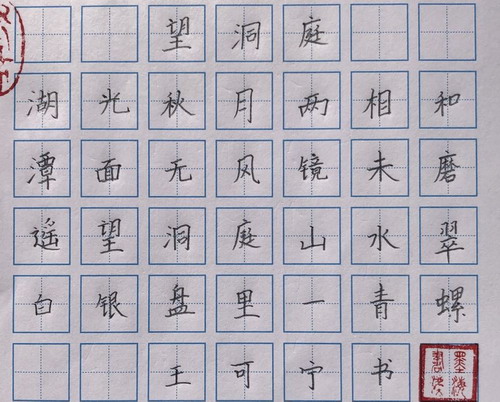 望洞庭
湖光秋月两相和
潭面无风镜未磨
遥望洞庭山水翠
白银盘里一青螺
王可宁书